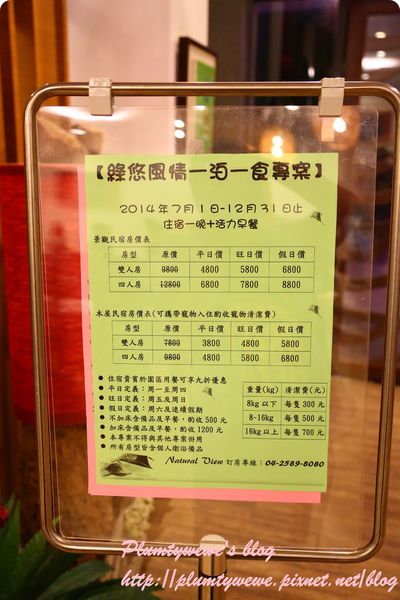 【綠悠風情一泊一食專案】
2014年7月1日-12月31日止
住宿一晚+活力早餐
景觀民宿房價表
房型 原價 平日價 旺日價 假日價
雙人房 9800 4800 5800 6800
四人房 12800 6800 7800 8800
木屋民宿房價表(可攜帶寵物入住酌收寵物清潔費)
房型 原價 平日價 旺日價 假日價
雙人房 7800 3800 4800 5800
四人房 9800 4800 5800 6800
● 住宿貴賓於園區用餐可享九折優惠
● 平日定義：周一至周四
● 旺日定義：周五及周日
● 假日定義：周六及連續假期
● 不加床含備品及早餐，酌收500元
● 加床含備品及早餐，酌收1200元
● 本專案不得與其他專案併用
● 所有房型皆含個人衛浴備品
重量(kg) 清潔費(元)
8kg以下 每隻300元
8-16kg 每隻500元
16kg以上 每隻700元
Natural View 訂房專線：04-2589-8080
Plumtywewe's blog
http://plumtywewe.pixnet.net/blog